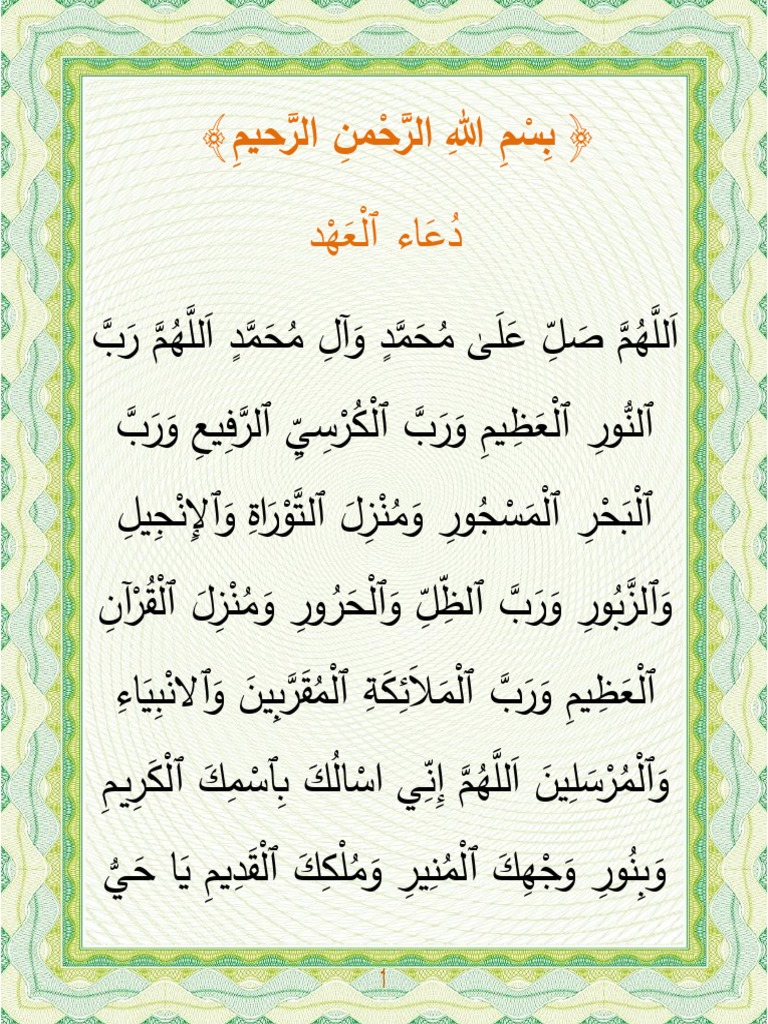 ﴿ بِسْمِ اللهِ الرَّحْمنِ الرَّحيمِ ﴾
دُعَاء ٱلْعَهْد
اَللَّهُمَّ صَلِّ عَلَىٰ مُحَمَّدٍ وَآلِ مُحَمَّدٍ اَللَّهُمَّ رَبَّ
ٱلنُّورِ ٱلْعَظِيمِ وَرَبَّ ٱلْكُرْسِيِّ ٱلرَّفِيعِ وَرَبَّ
ٱلْبَحْرِ ٱلْمَسْجُورِ وَمُنْزِلَ ٱلتَّوْرَاةِ وَٱلإِنْجِيلِ
وَٱلزَّبُورِ وَرَبَّ ٱلظِّلِّ وَٱلْحَرُورِ وَمُنْزِلَ ٱلْقُرْآنِ
ٱلْعَظِيمِ وَرَبَّ ٱلْمَلاَئِكَةِ ٱلْمُقَرَّبِينَ وَٱلانْبِيَاءِ
وَٱلْمُرْسَلِينَ اَللَّهُمَّ إِنِّي اسْالُكَ بِٱسْمِكَ ٱلْكَرِيمِ
وَبِنُورِ وَجْهِكَ ٱلْمُنِيرِ وَمُلْكِكَ ٱلْقَدِيمِ يَا حَيُّ
1